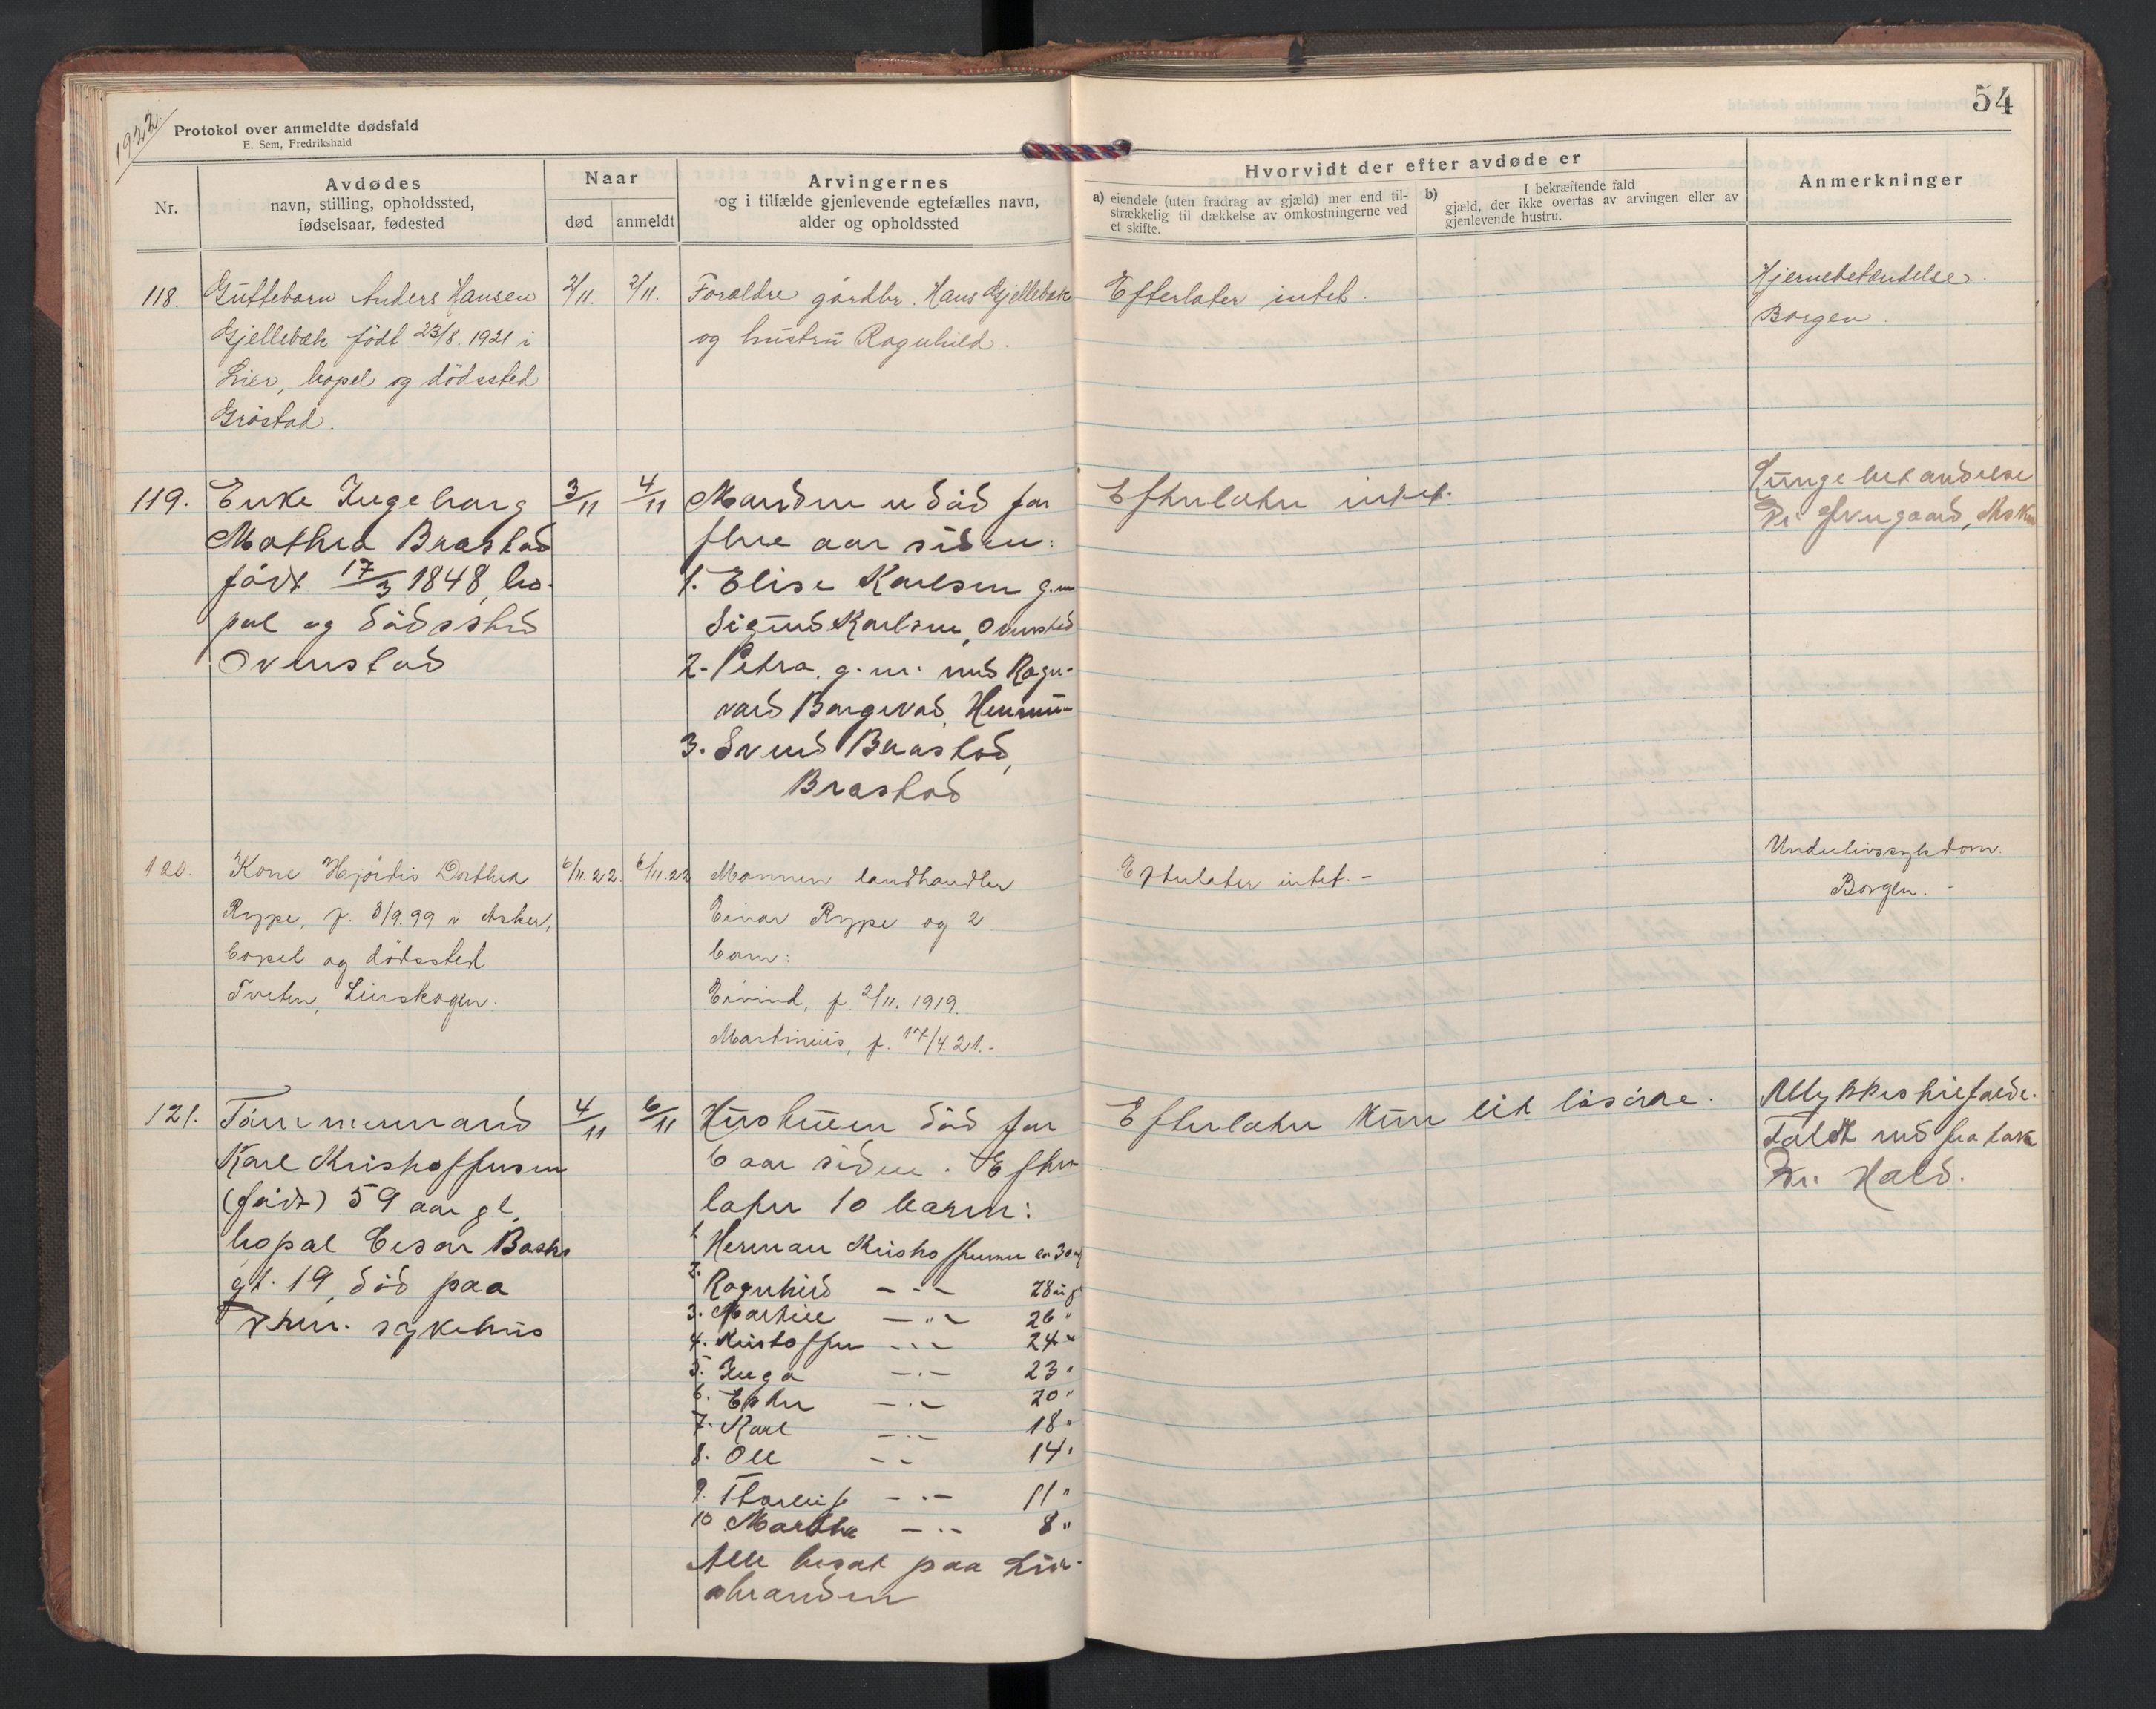 1922.
Protokol over anmeldte dødsfald
E. Sem, Fredrikshald
54
Nr.
Avdødes
navn, stilling, opholdssted,
fødselsaar, fødested
Naar
død
anmeldt
Arvingernes
og i tilfælde gjenlevende egtefælles navn,
alder og opholdssted
Hvorvidt der efter avdøde er
a) eiendele (uten fradrag av gjæld) mer end til-
strækkelig til dækkelse av omkostningerne ved
et skifte.
b) I bekræftende fald
gjæld, der ikke overtas av arvingen eller av
gjenlevende hustru.
Anmerkninger
118.
Guttebarn Anders Hansen
Gjellebæk født 23/8. 1921 i
Lier, bopel og dödssted
Gröstad.
2/11.
2/11.
Forældre gårdbr. Hans Gjellebæk
og hustru Ragnhild.
Efterlater intet.
Hjernebetændelse.
Borgen.
119.
Enke Ingeborg
Mathea Brastad
født 17/3 1848, bo-
pel og dödssted
Ovenstad
3/11
4/11
Manden er död for
flere aar siden:
1. Elise Karlsen g.m.
Sigurd Karlsen, Ovenstad
2. Petra, g.m. med Ragn-
vard
3. Svend Brastad,
Brastad
Efterlater intet.
Lungebetændelse
120.
Kone Hjördis Dorthea
Rype, f. 3/9.99 i Asker,
bopel og dödssted
Tveten, Lierskogen.
6/11.22.
6/11.22
Mannen landhandler
Einar Rype og 2
barn:
Eivind, f. 2/11. 1919.
Martinius, f. 17/4.21.-
Efterlater intet.-
Underlivssykdom.
Borgen.-
121.
Tömmermand
Karl Kristoffersen
(födt) 59 aar gl.
bopæl
gt. 19, död paa
sykehus
4/11
6/11
Hustruen död for
6 aar siden. Efter-
later 10 barn:
1. Herman Kristoffersen ca 30
2. Ragnhild - " - 28
3. Martin - " - 26 "
4. Kristoffer - " - 24 "
5. Inga - " - 23 "
6. Ester - " - 20 "
7. Karl - " - 18 "
8. Ole - " - 14 "
9. Thorleif - " - 11 "
10 Martha - " - 8 "
Alle bosat paa Lier-
stranden
Efterlater kun lit lösöre.
Ulykkestilfælde.
Faldt ned fra tak
Dr. Hald.